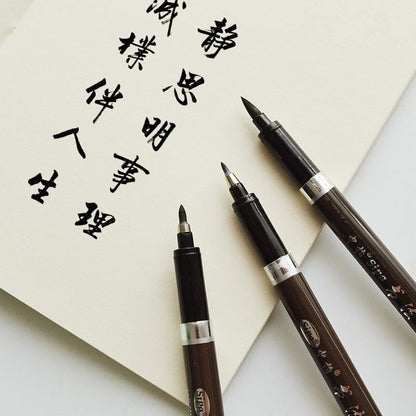 静思明事理
樸伴人生
Sino